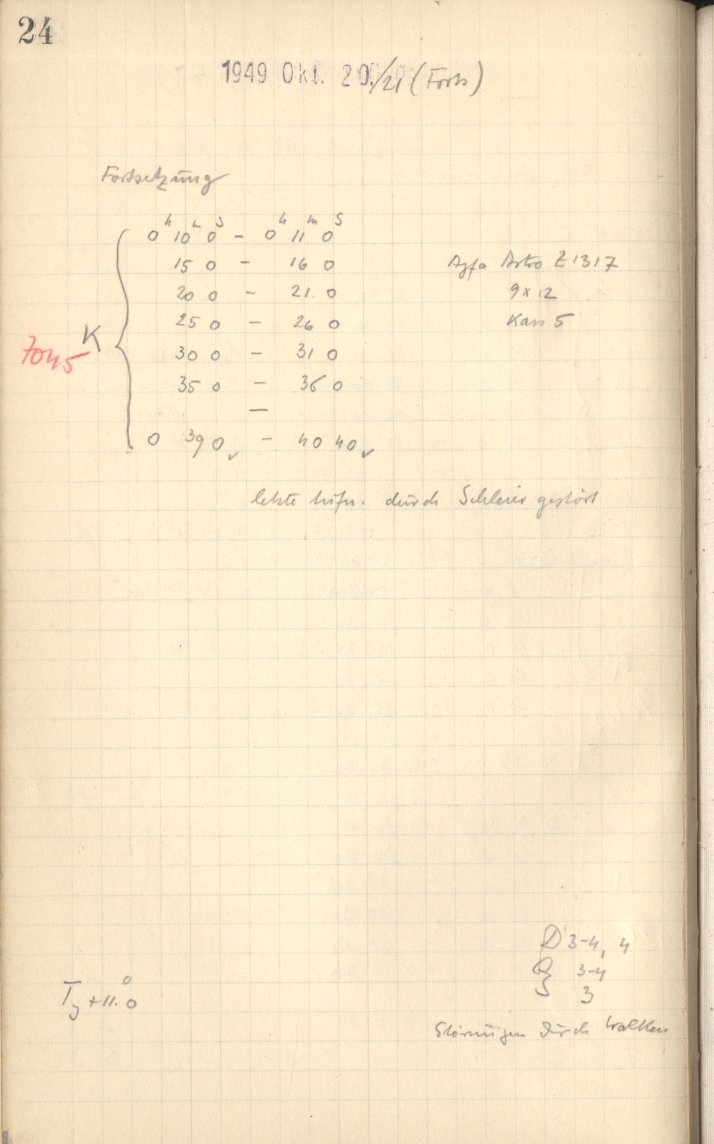 24
1949 Okt. 20./21 (Forts)
Fortsetzung
0h 10m 0s - 0h 11m 0s
15 0 - 16 0
20 0 - 21. 0
25 0 - 26 0
30 0 - 31 0
35 0 - 36 0
—
0 39 0 - 40 40
K
7045
Agfa Astro Z1317
9x12
Kass 5
letzte Aufn. durch Schleier gestört
D 3-4, 4
3-4
3
T +11.°0
Störungen durch Wolken